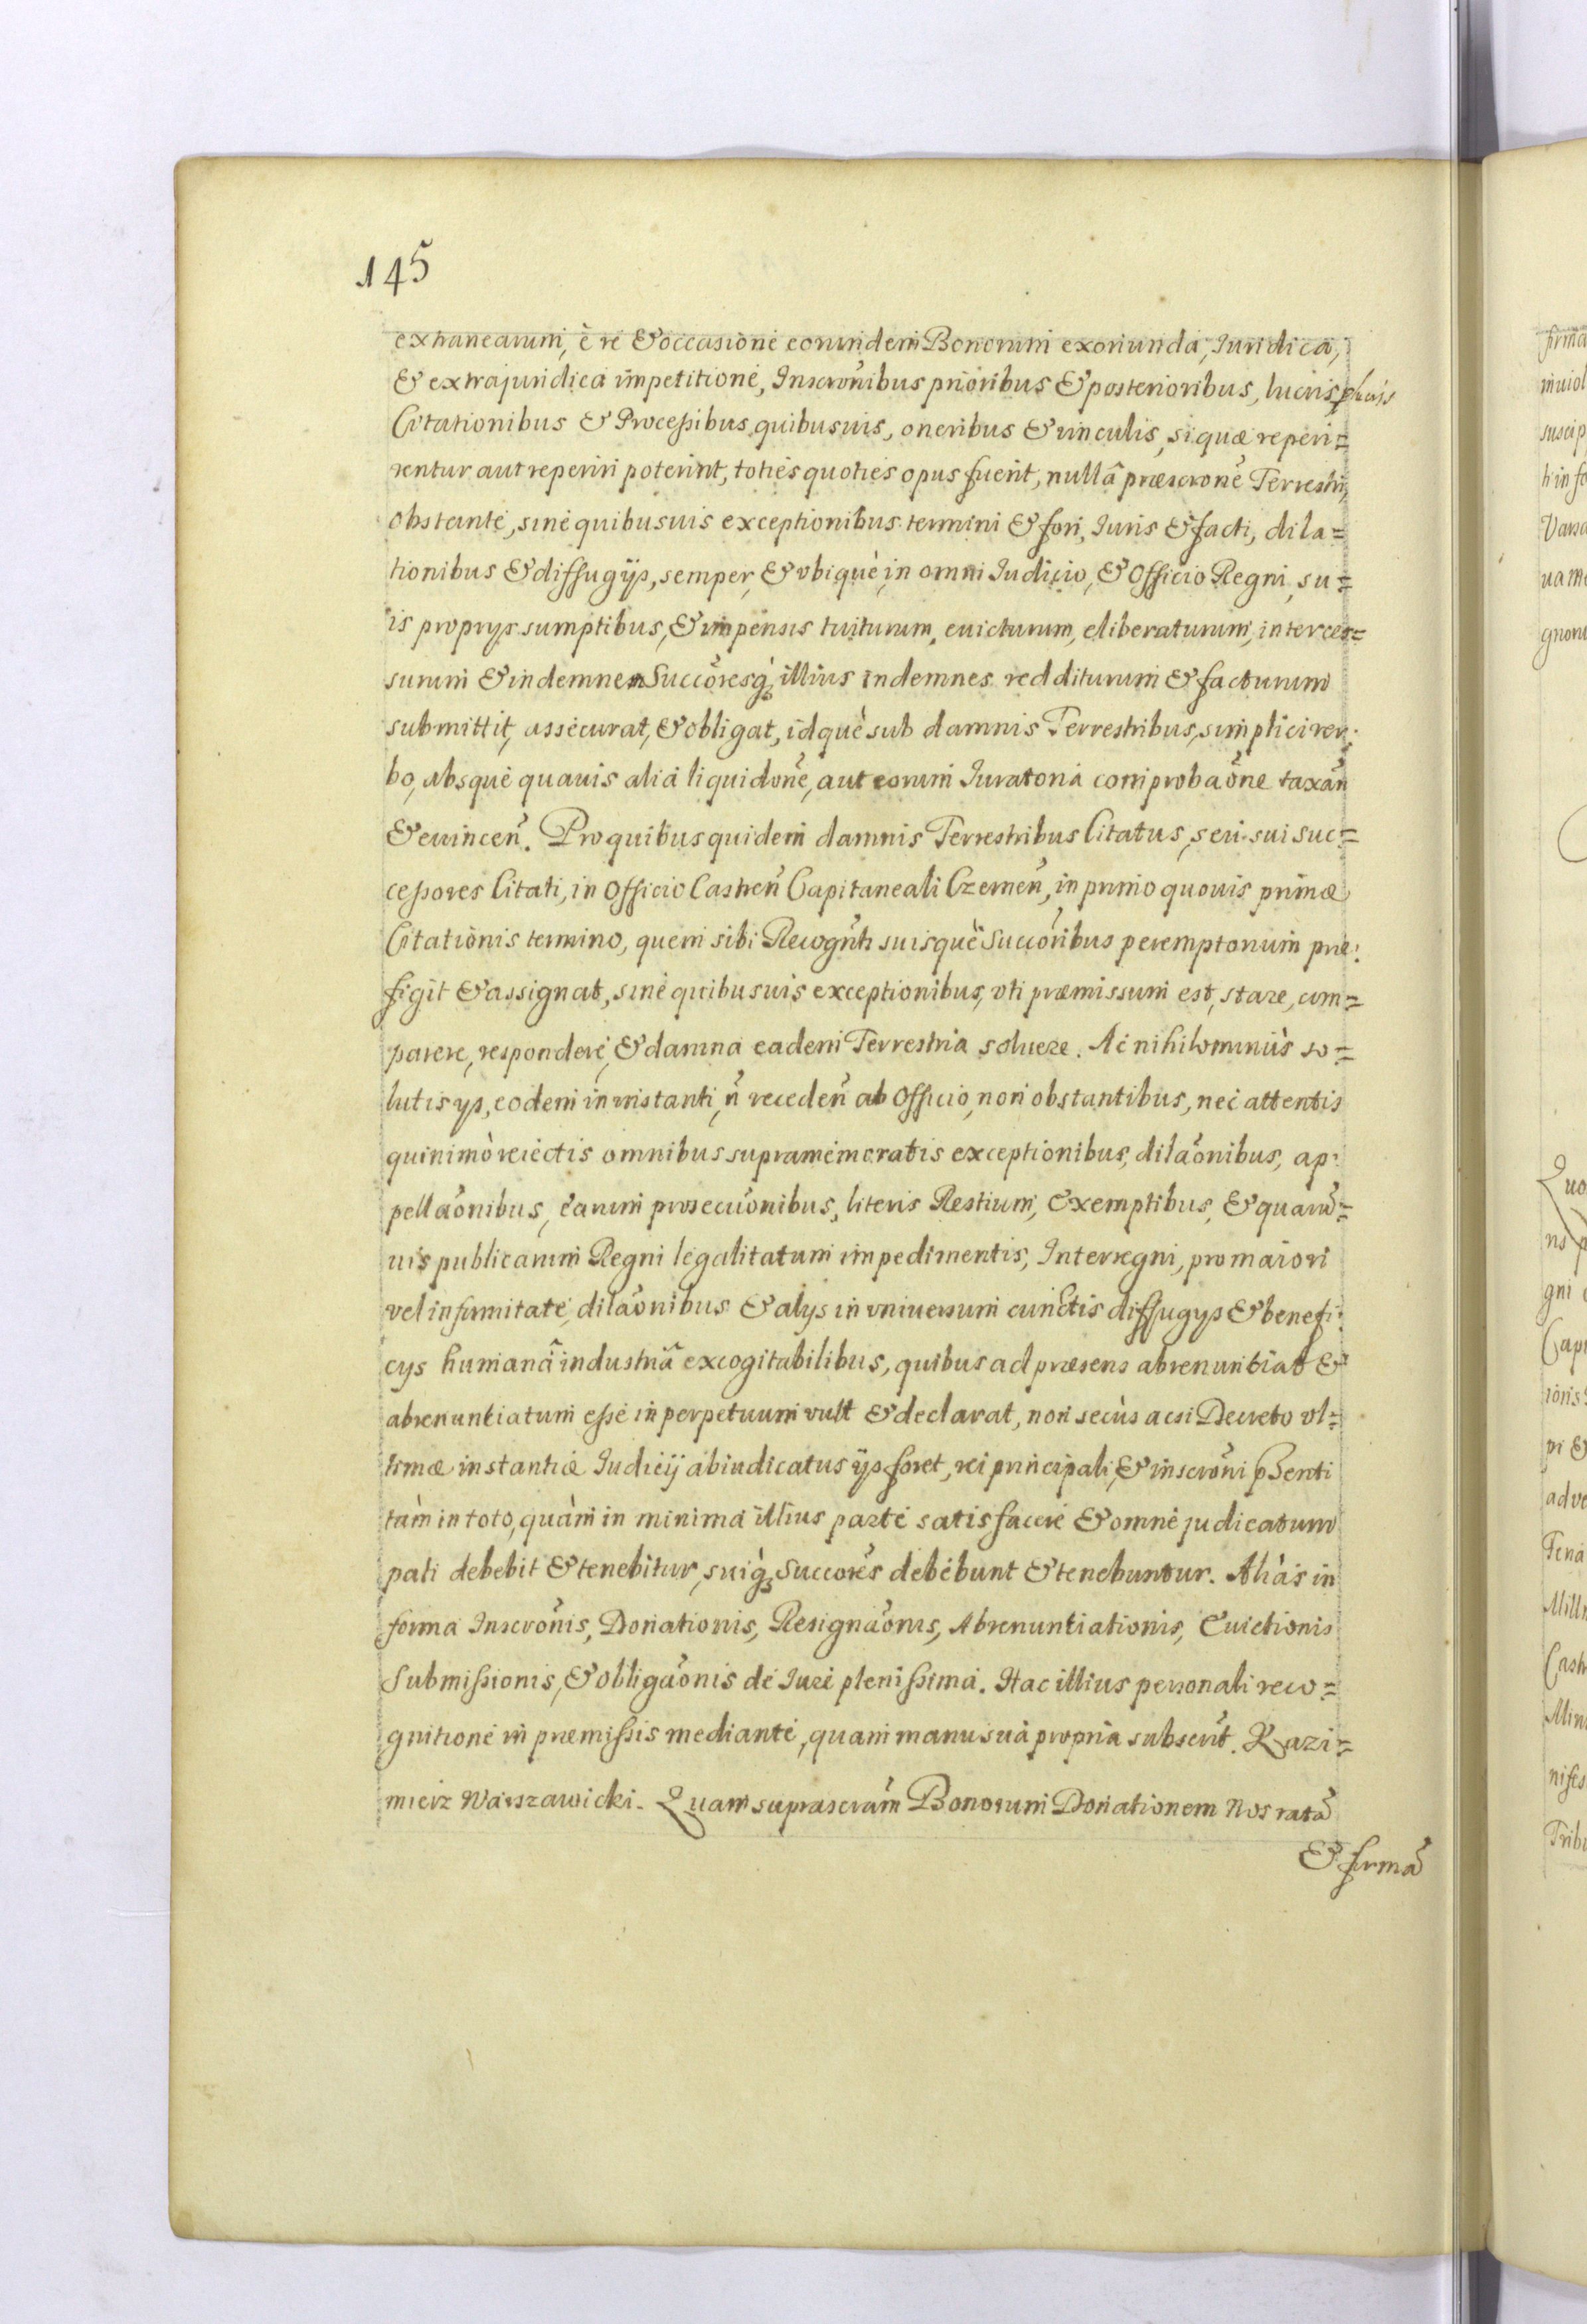 145
extranearum, è re & occasione eorundem Bonorum exoriunda, Iuridica,
& extrajuridica impetitione, Inscrõnibus prioribus & posterioribus, lucris
Citationibus & Processibus quibusuis, oneribus & vinculis, si quæ reperi=
rentur aut reperiri poterint, toties quoties opus fuerit, nullâ præscrõne Terrestri,
obstante, sine quibusuis exceptionibus termini & fori, Iuris & facti, dila=
tionibus & diffugijs, semper, & vbiquè, in omni Iudicio, & Officio Regni, su=
is proprys sumptibus, & impensis tuiturum, euicturum, eliberaturum, interces=
surum & indemnem Succõresq̀ illius indemnes redditurum & facturum
submittit, assecurat, & obligat, idquè sub damnis Terrestribus, simplici ver:
bo, absque quauis alia liquidõne, aut eorum Iuratoria comprobaõne taxãn
& euinceñ. Pro quibus quidem damnis Terrestribus Citatus, seu sui suc=
cessores Citati, in Officio Castreñ Capitaneali Czerneñ, in primo quouis primæ
Citationis termino, quem sibi Recogñti suisquè Succõribus peremptorium præ:
figit & assignat, sine quibusuis exceptionibus, vti præmissum est, stare, com=
parere, respondere, & damna eadem Terrestria soluere. Ac nihilominùs so=
lutis ys, eodem in instanti, ñ recedeñ ab Officio, non obstantibus, nec attentis
quinimò reiectis omnibus supramemoratis exceptionibus, dilãonibus, ap:
pellãonibus, earum prosecuõnibus, literis Restium, Exemptibus, & quarũ=
uis publicarum Regni legalitatum impedimentis, Interregni, pro maiori
vel infirmitate, dilãonibus & alys in vniuersum cunctis diffugys & benefi:
cys humanâ industriâ excogitabilibus, quibus ad præsens abrenuntiat &
abrenuntiatum esse in perpetuum vult & declarat, non secùs acsi Decreto vl=
timæ instantiæ Iudicij abiudicatus ijs foret, rei principali, & inscrõni pñenti
tàm in toto, quàm in minima illius parte satisfacere & omne judicatum
pati debebit & tenebitur, suiq̀ Succores debebunt & tenebuntur. Aliàs in
forma Inscrõnis, Donationis, Resignãonis, Abrenuntiationis, Euictionis
Submissionis, & obligãonis de Iure plenissima. Hac illius personali reco=
gnitione in præmissis mediante, quam manu sua propria subscrit. Kazi=
mierz Warszawicki. Quam suprascrãm Bonorum Donationem Nos ratã
& firmã